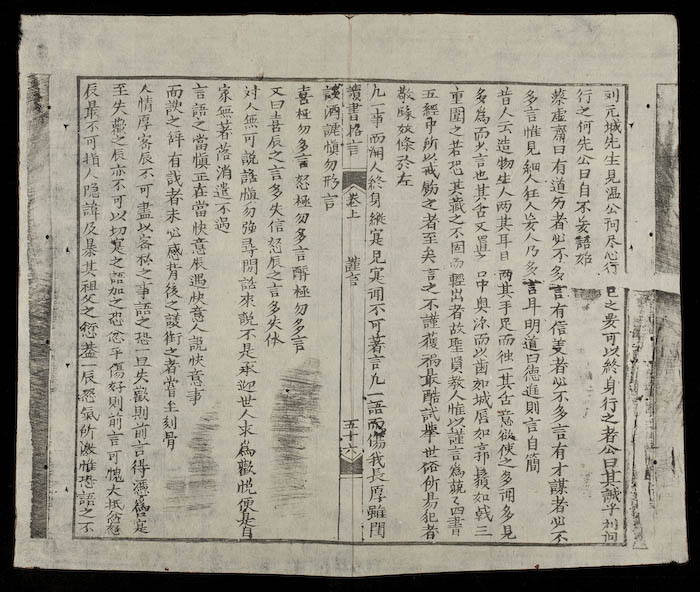 刘元城先生見温公问尽心行己之要可以終身行之者公曰其誠乎刘问
行之何先公曰自不妄語始
蔡虚齋曰有道為者必不多言有信義者必不多言有才謀者必不
多言惟見細人狂人妄人乃多言耳明道曰德進則言自簡
昔人云造物生人两其耳目两其手足而独一其舌意欲使之多闻多見
多為而少言也其舌又置口中奥深而以齒如城唇如郭鬚如戟三
重圍之若恐其藏之不固而輕出者故聖賢教人惟以謹言為兢々四書
五經中所以戒勉之者至矣言之不謹獲禍最酷試挙世俗所易犯者
敬録数條於左
凡一事而関人終身縱寔見寔闻不可著言凡一語而傷我長厚雖閒
讀書格言 卷上 謹言 五十六
談酒謔慎勿形言
喜極勿多言怒極勿多言醉極勿多言
又曰喜辰之言多失信怒辰之言多失体
対人無可說話慎勿強尋閒話來說不是承迎世人求為歡悦便是自
家無著落消遣不過
言語之當慎正在當快意辰遇快意人說快意事
面諛之詞有識者未必感背後之議銜之者嘗至刻骨
人情厚密辰不可盡以密私之事語之恐一旦失歡則前言得憑為口寔
至失歡之辰亦不可以切寔之語加之恐忿平復好則前言可愧大抵忿怒
辰最不可指人隐諱及暴其祖父之愆蓋一辰怒氣所激惟恐語之不